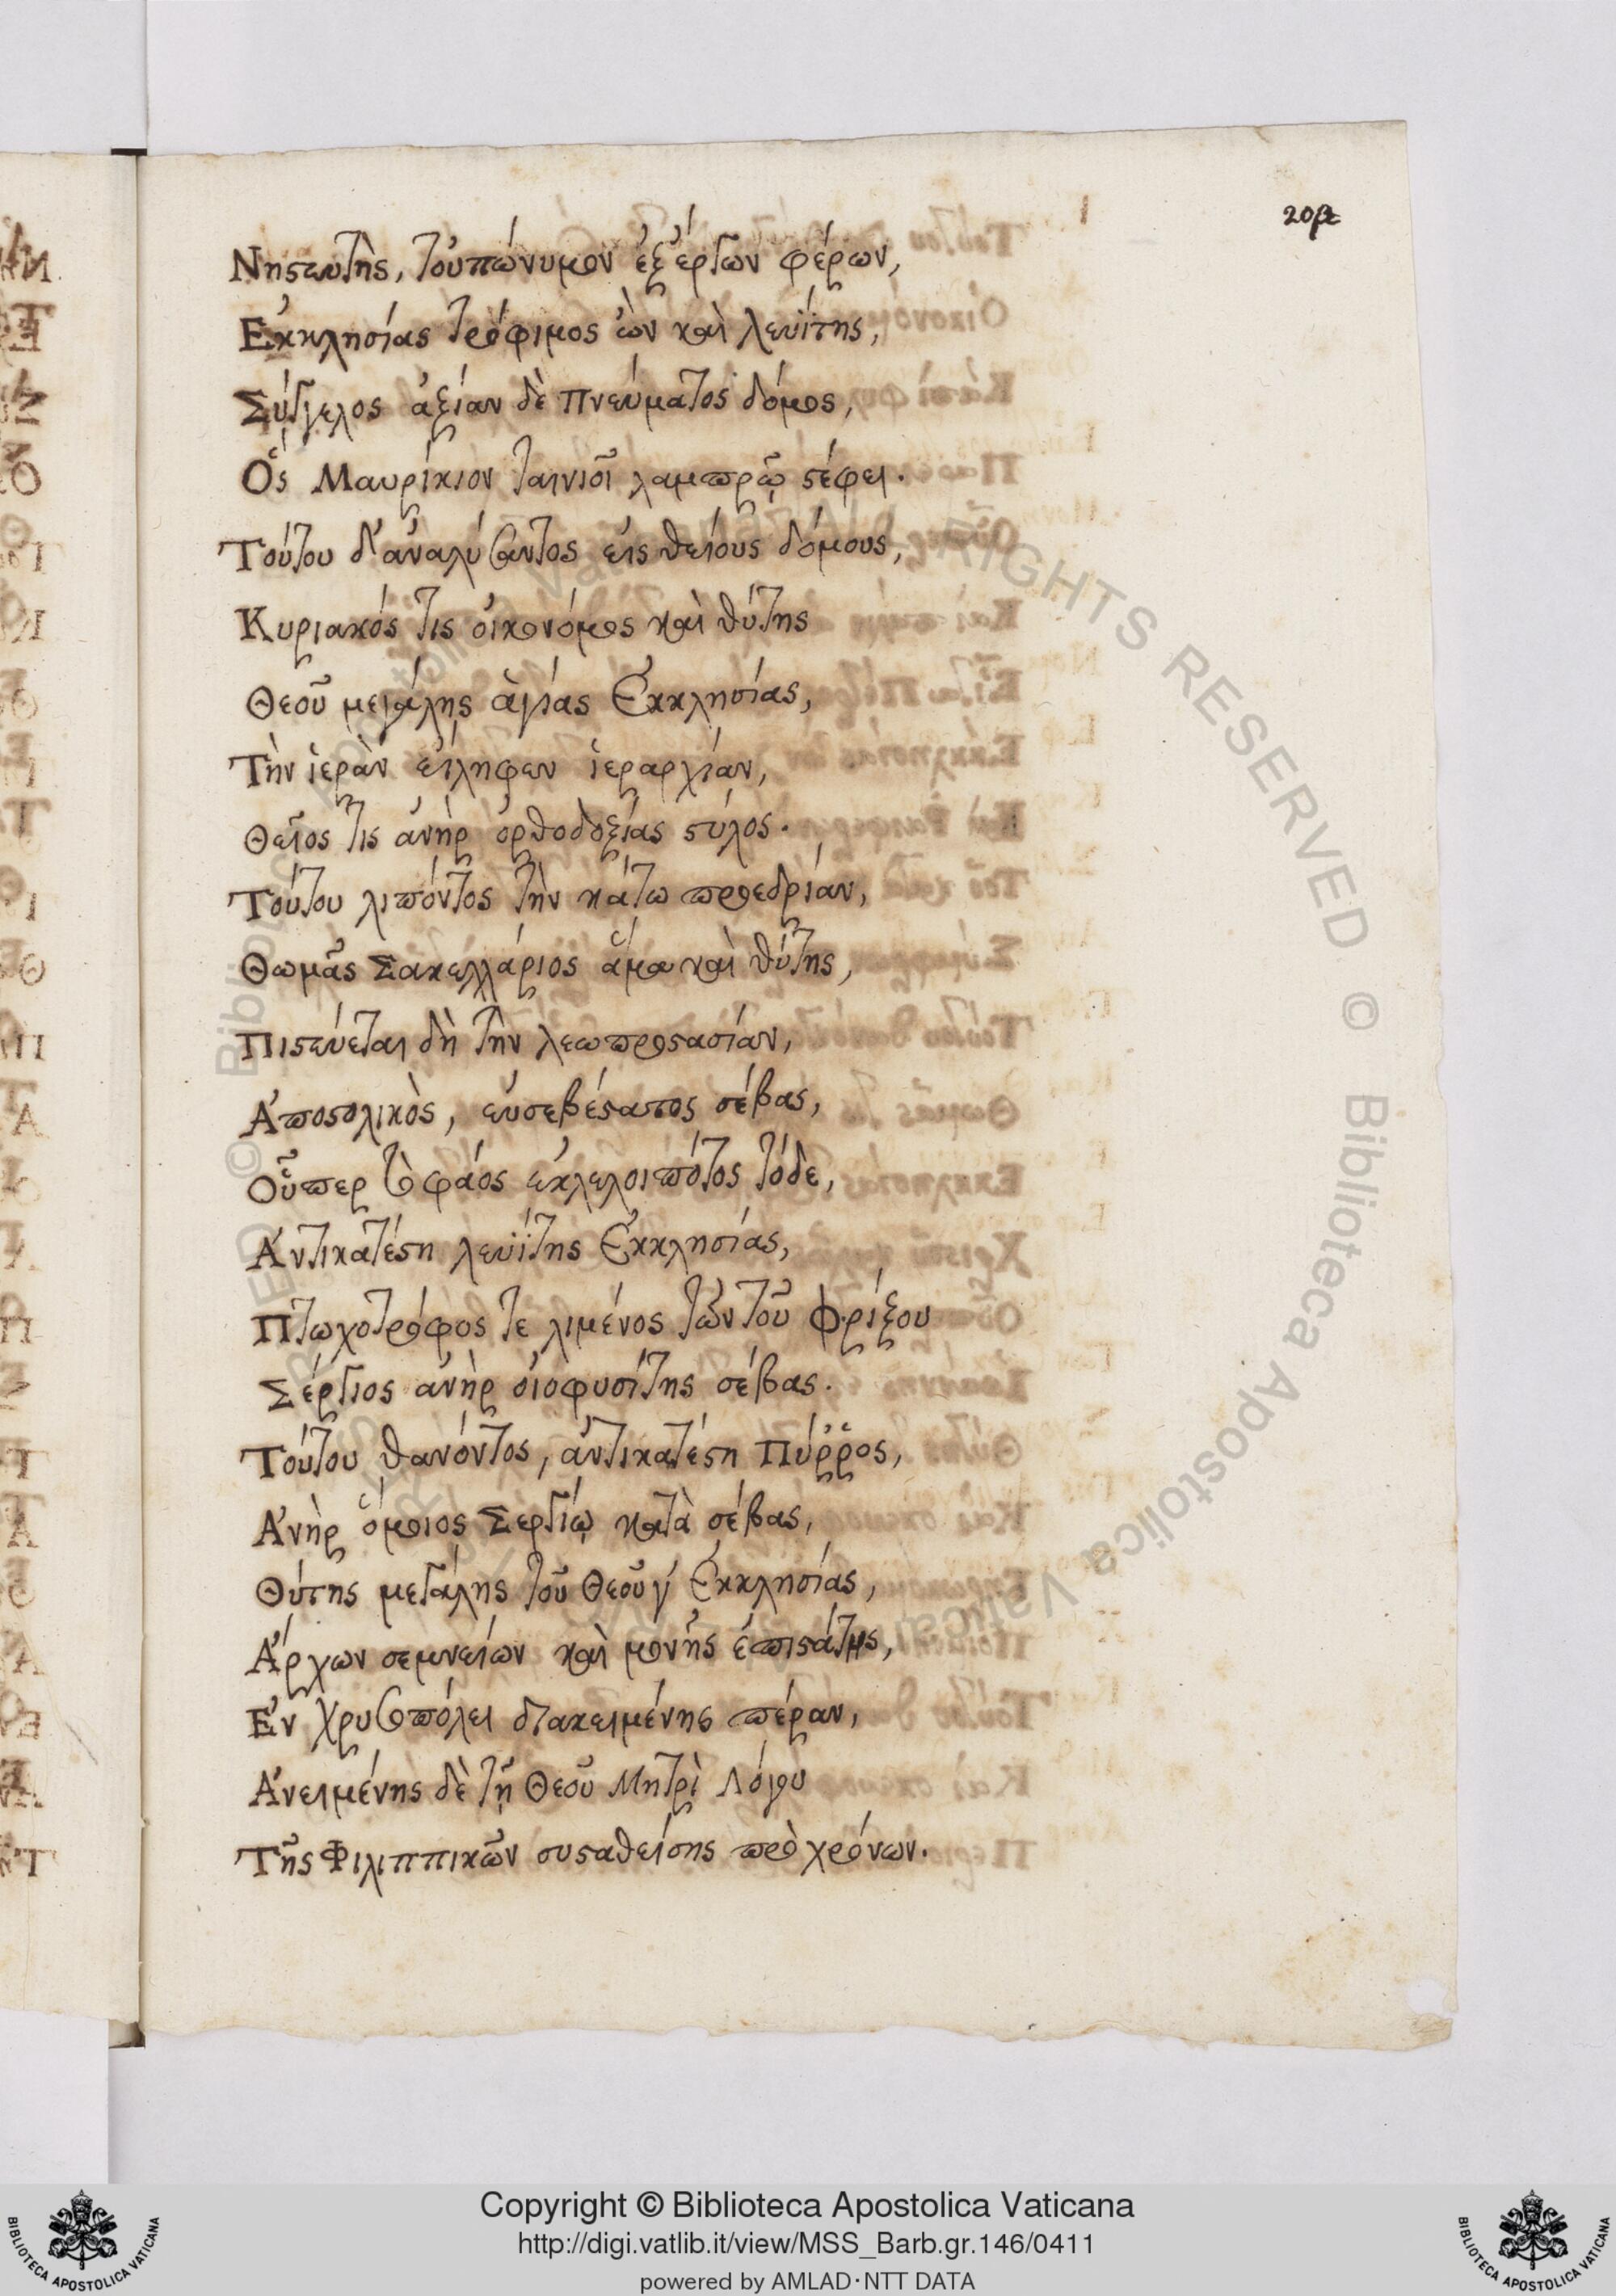 205
Νηστευτὴς, τοὐπώνυμον ἐξ ἔργων φέρων,
Ἐκκλησίας τρόφιμος ὢν καὶ λευΐτης,
Σύγγελος ἀξίαν δὲ πνεύματος δόμος,
Ὃς Μαυρίκιον ταινιοῖ λαμπρῷ στέφει.
Τούτου δ' ἀναλύσαντος εἰς θείους δόμους,
Κυριακός τις οἰκονόμος καὶ θύτης
Θεοῦ μεγάλης ἁγίας Ἐκκλησίας,
Τὴν ἱερὰν εἴληφεν ἱεραρχίαν,
Θεῖος τις ἀνὴρ ὀρθοδοξίας στύλος.
Τούτου λιπόντος τὴν κάτω προεδρίαν,
Θωμᾶς Σακελλάριος ἅμα καὶ θύτης,
Πιστεύεται δὴ τὴν λεωπροστασίαν,
Ἀποστολικὸς, εὐσεβέστατος σέβας,
Οὗπερ τὸ φάος ἐκλελοιπότος τόδε,
Ἀντικατέστη λευΐτης Ἐκκλησίας,
Πτωχοτρόφος τε λιμένος τῶν τοῦ Φρίξου
Σέργιος ἀνὴρ οἰοφυσίτης σέβας.
Τούτου θανόντος, ἀντικατέστη Πύῤῥος,
Ἀνὴρ ὅμοιος Σεργίῳ κατὰ σέβας,
Θύτης μεγάλης τοῦ Θεοῦ γ' Ἐκκλησίας,
Ἄρχων σεμνείων καὶ μονῆς ἐπιστάτης,
Ἐν Χρυσοπόλει διακειμένης πέραν,
Ἀνειμένης δὲ τῇ Θεοῦ Μητρὶ Λόγου
Τῆς Φιλιππικῶν συσταθείσης πρὸ χρόνων.
© Biblioteca Apostolica Vaticana ALL RIGHTS RESERVED © Biblioteca Apostolica Vaticana
Copyright © Biblioteca Apostolica Vaticana
http://digi.vatlib.it/view/MSS_Barb.gr.146/0411
powered by AMLAD·NTT DATA
BIBLIOTECA APOSTOLICA VATICANA
BIBLIOTECA APOSTOLICA VATICANA